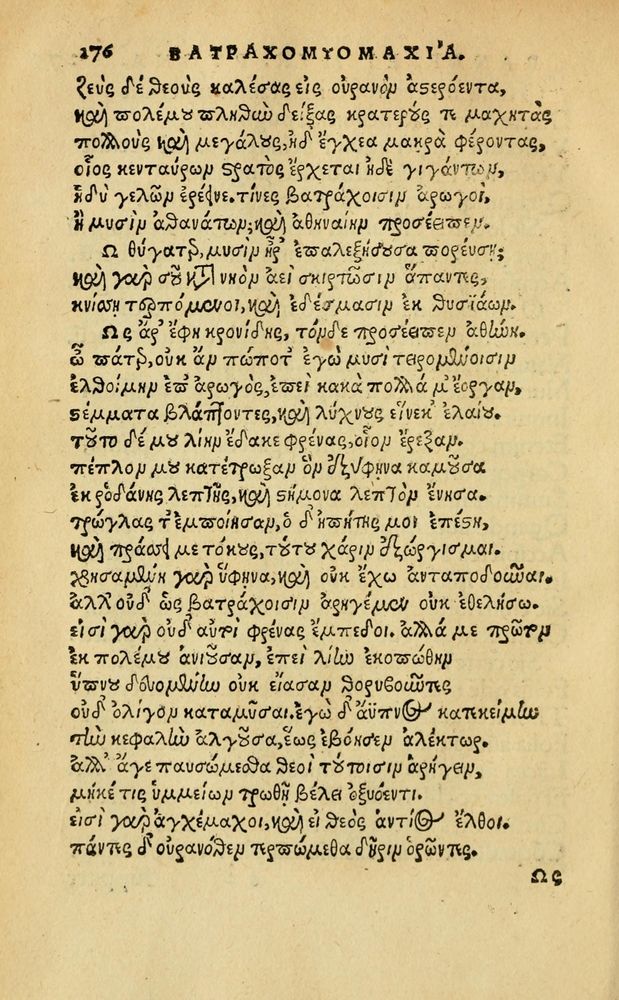 276 ΒΑΤΡΑΧΟΜΥΟΜΑΧΙ´Α.
ζεὺς δὲ θεοὺς καλέσας εἰς οὐρανὸν ἀστερόεντα,
καὶ πολέμου πληθὺν δείξας κρατερούς τε μαχητὰς
πολλοὺς καὶ μεγάλους, ἠδ' ἔγχεα μακρὰ φέροντας,
οἷος κενταύρων στρατὸς ἔρχεται ἠδὲ γιγάντων,
ἡδὺ γελῶν ἐρέεινε. τίνες βατράχοισιν ἀρωγοὶ,
ἢ μυσὶν ἀθανάτων; καὶ ἀθηναίην προσέειπεν.
Ω θύγατερ, μυσὶν ἦρ' ἐπαλεξήσουσα πορεύσῃ;
καὶ γὰρ σοῦ κτ νηὸν ἀεὶ σκιρτῶσιν ἅπαντες,
κνίσῃ τερπόμενοι, καὶ ἐδέσμασιν ἐκ θυσιάων.
Ως ἄρ' ἔφη κρονίδης, τόνδε προσέειπεν ἀθήνη.
ὦ πάτερ, οὐκ ἂν πώποτ' ἐγὼ μυσὶ τειρομένοισιν
ἐλθοίμην ἐπ' ἀρωγὸς, ἐπεὶ κακὰ πολλά μ' ἔοργαν,
στέμματα βλάπτοντες, καὶ λύχνους εἵνεκ' ἐλαίου.
τοῦτο δέ μου λίην ἔδακε φρένας, οἷον ἔρεξαν.
πέπλον μου κατέτρωξαν ὃν ἐξύφηνα καμοῦσα
ἐκ ῥοδάνης λεπτῆς, καὶ στήμονα λεπτὸν ἔνησα.
τρώγλας τ' ἐμποίησαν, ὁ δ' ἠπητής μοι ἐπέστη,
καὶ πράσσει με τόκους, τούτου χάριν ἐξώργισμαι.
χρησαμένη γὰρ ὕφηνα, καὶ οὐκ ἔχω ἀνταποδοῦναι.
ἀλλ' οὐδ' ὣς βατράχοισιν ἀρηγέμεν οὐκ ἐθελήσω.
εἰσὶ γὰρ οὐδ' αὐτοὶ φρένας ἔμπεδοι. ἀλλά με πρῶτον
ἐκ πολέμου ἀνιοῦσαν, ἐπεὶ λίην ἐκοπώθην
ὕπνου δευομένην οὐκ εἴασαν θορυβοῦντες
οὐδ' ὀλίγον καταμῦσαι. ἐγὼ δ' ἄϋπνος κατεκείμην
τὴν κεφαλὴν ἀλγοῦσα, ἕως ἐβόησεν ἀλέκτωρ.
ἀλλ' ἄγε παυσώμεσθα θεοὶ τούτοισιν ἀρήγειν,
μή κέ τις ὑμμείων τρωθῇ βέλει ὀξυόεντι.
εἰσὶ γὰρ ἀγχέμαχοι, καὶ εἰ θεὸς ἀντίος ἔλθοι.
πάντες δ' οὐρανόθεν τερπώμεθα δῆριν ὁρῶντες.
Ως